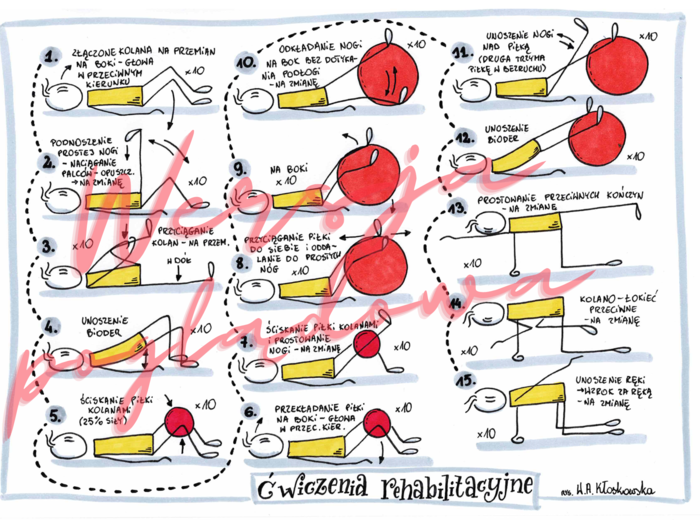 1.
ZŁĄCZONE KOLANA NA PRZEMIAN
NA BOKI - GŁOWA
W PRZECIWNYM
KIERUNKU
×10
2.
PODNOSZENIE
PROSTEJ NOGI
- NACIĄGANIE
PALCÓW - OPUSZCZ.
→ NA ZMIANĘ
×10
3.
×10
PRZYCIĄGANIE
KOLAN - NA PRZEM.
W DÓŁ
4.
UNOSZENIE
BIODER
×10
5.
ŚCISKANIE PIŁKI
KOLANAMI
(25% SIŁY)
×10
6.
PRZEKŁADANIE PIŁKI
NA BOKI - GŁOWA
W PRZEC. KIER.
×10
7.
ŚCISKANIE PIŁKI KOLANAMI
I PROSTOWANIE
NOGI - NA ZMIANĘ
×10
8.
PRZYCIĄGANIE PIŁKI
DO SIEBIE I ODDA-
LANIE DO PROSTYCH
NÓG ×10
9.
NA BOKI
×10
10.
ODKŁADANIE NOGI
NA BOK BEZ DOTYKA-
NIA PODŁOGI
- NA ZMIANĘ
×10
11.
UNOSZENIE NOGI
NAD PIŁKĄ
(DRUGA TRZYMA
PIŁKĘ W BEZRUCHU)
×10
12.
UNOSZENIE
BIODER
×10
13.
PROSTOWANIE PRZECIWNYCH KOŃCZYN
- NA ZMIANĘ
×10
14.
KOLANO - ŁOKIEĆ
PRZECIWNE
- NA ZMIANĘ
×10
15.
UNOSZENIE RĘKI
→ WZROK ZA RĘKĄ
- NA ZMIANĘ
×10
Ćwiczenia rehabilitacyjne
H.A. Kłoskowska
Wersja
poglądowa